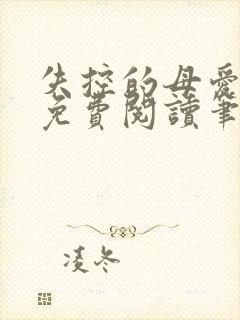 失控的母愛
免費閱讀筆
凌冬